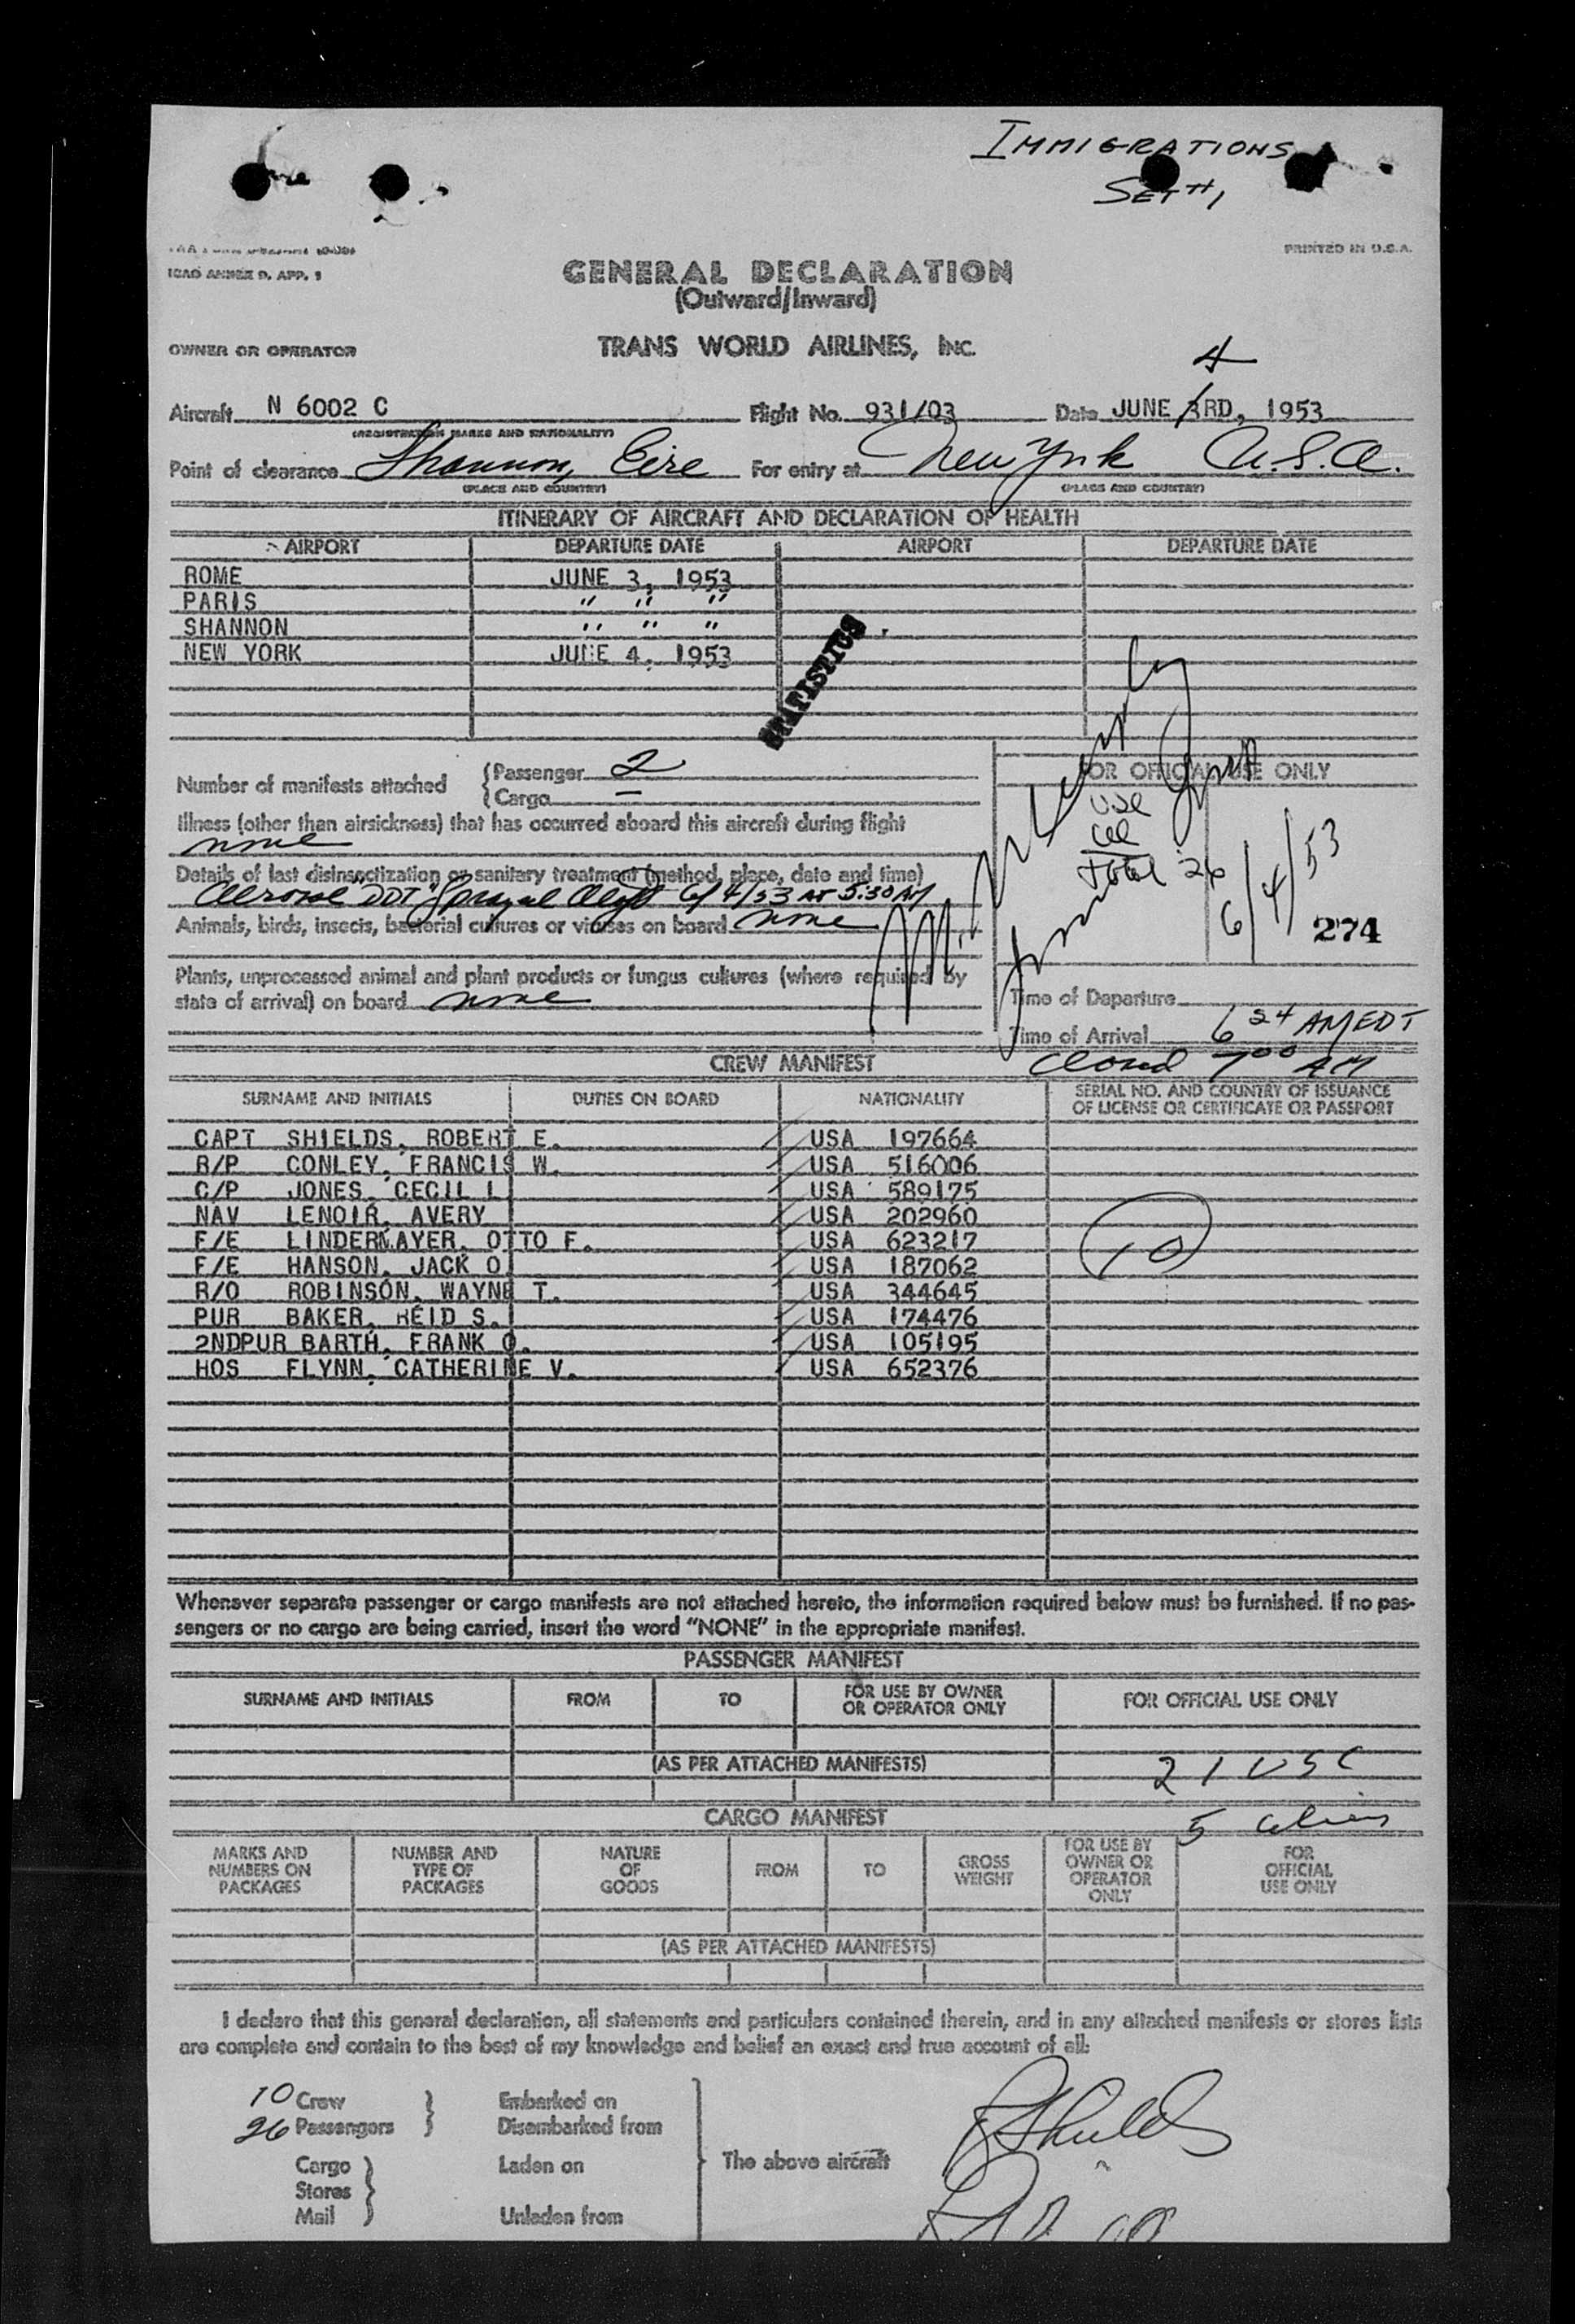 IMMIGRATIONS
SET #1
ICAO ANNEX 9, APP. 1
PRINTED IN U.S.A.
GENERAL DECLARATION
(Outward/Inward)
OWNER OR OPERATOR TRANS WORLD AIRLINES, INC.
4
Aircraft N 6002 C Flight No. 931/03 Date JUNE 3RD, 1953
(REGISTRATION MARKS AND NATIONALITY)
Point of clearance Shannon, Eire For entry at New York U.S.A.
(PLACE AND COUNTRY) (PLACE AND COUNTRY)
ITINERARY OF AIRCRAFT AND DECLARATION OF HEALTH
AIRPORT DEPARTURE DATE AIRPORT DEPARTURE DATE
ROME JUNE 3, 1953
PARIS " " "
SHANNON " " "
NEW YORK JUNE 4, 1953
STATISTICS
Number of manifests attached { Passenger 2
{ Cargo —
FOR OFFICIAL USE ONLY
Illness (other than airsickness) that has occurred aboard this aircraft during flight
none
Details of last disinsectization or sanitary treatment (method, place, date and time)
Total 26
6/4/53
Aerosol "DDT" Sprayed 6/4/53 AT 5:30 AM
Animals, birds, insects, bacterial cultures or viruses on board none
274
Plants, unprocessed animal and plant products or fungus cultures (where required by
state of arrival) on board none
Time of Departure
Time of Arrival 6 24 AM EDT
Closed 7 00 AM
CREW MANIFEST
SURNAME AND INITIALS DUTIES ON BOARD NATIONALITY SERIAL NO. AND COUNTRY OF ISSUANCE
OF LICENSE OR CERTIFICATE OR PASSPORT
CAPT SHIELDS, ROBERT E. USA 197664
R/P CONLEY, FRANCIS W. USA 516006
C/P JONES, CECIL L. USA 589175
NAV LENOIR, AVERY USA 202960
F/E LINDERMAYER, OTTO F. USA 623217
10
F/E HANSON, JACK O. USA 187062
R/O ROBINSON, WAYNE T. USA 344645
PUR BAKER, REID S. USA 174476
2NDPUR BARTH, FRANK O. USA 105195
HOS FLYNN, CATHERINE V. USA 652376
Whenever separate passenger or cargo manifests are not attached hereto, the information required below must be furnished. If no pas-
sengers or no cargo are being carried, insert the word "NONE" in the appropriate manifest.
PASSENGER MANIFEST
SURNAME AND INITIALS FROM TO FOR USE BY OWNER
OR OPERATOR ONLY FOR OFFICIAL USE ONLY
(AS PER ATTACHED MANIFESTS) 21 USC
CARGO MANIFEST 5 aliens
MARKS AND
NUMBERS ON
PACKAGES NUMBER AND
TYPE OF
PACKAGES NATURE
OF
GOODS FROM TO GROSS
WEIGHT FOR USE BY
OWNER OR
OPERATOR
ONLY FOR
OFFICIAL
USE ONLY
(AS PER ATTACHED MANIFESTS)
I declare that this general declaration, all statements and particulars contained therein, and in any attached manifests or stores lists
are complete and contain to the best of my knowledge and belief an exact and true account of all:
10 Crew } Embarked on
26 Passengers } Disembarked from
R Shields
The above aircraft
Cargo } Laden on
Stores
Mail } Unladen from